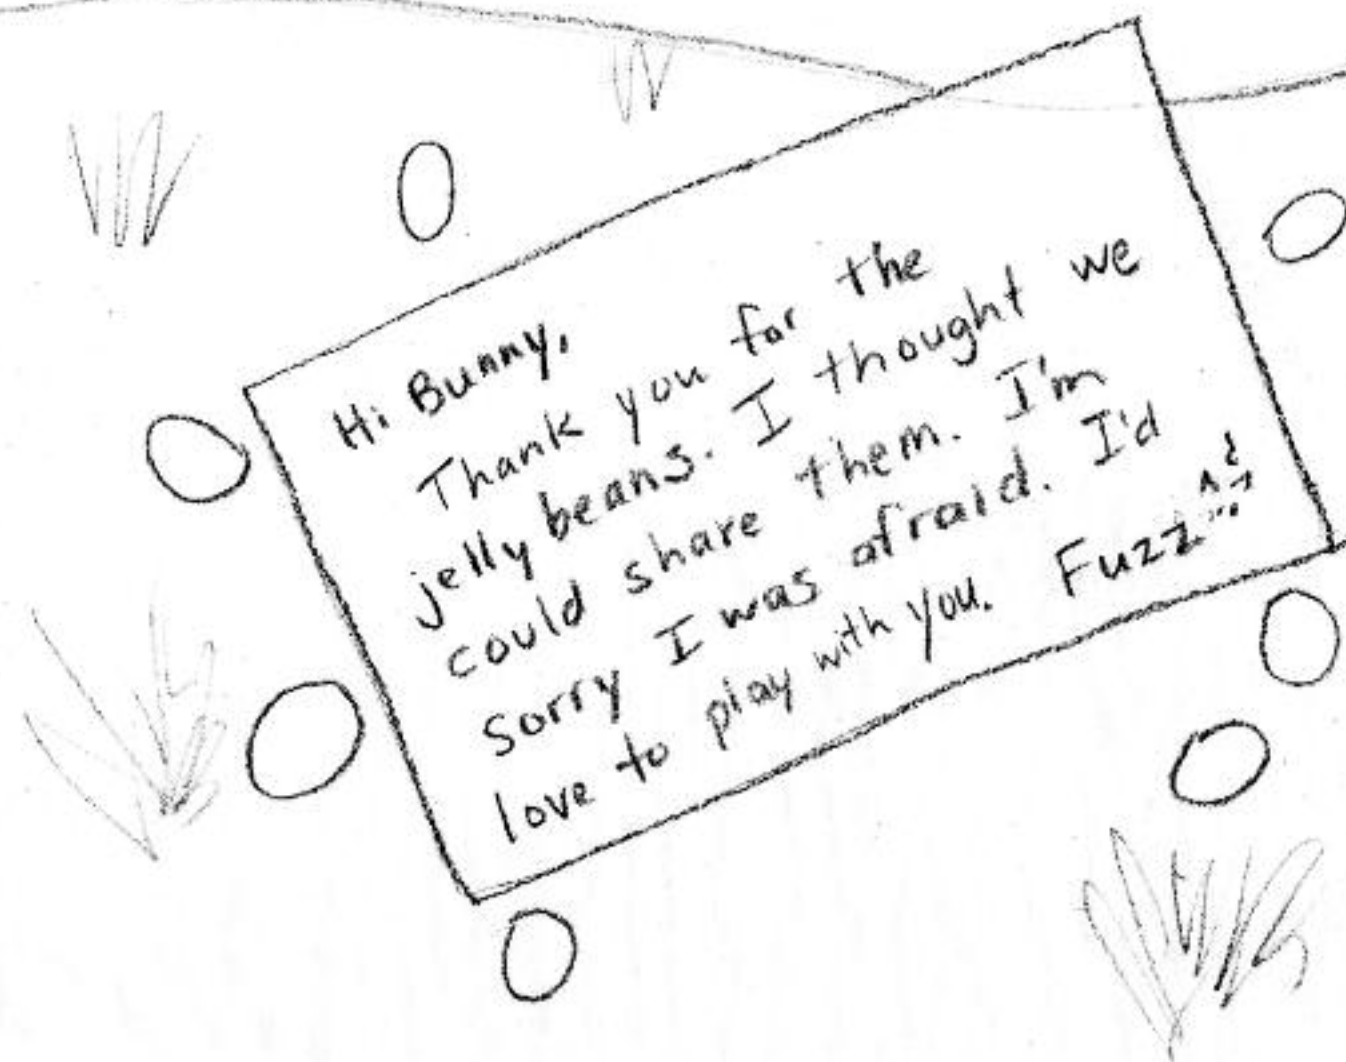 Hi Bunny,
Thank you for the
jelly beans. I thought we
could share them. I'm
sorry I was afraid. I'd
love to play with you. Fuzz